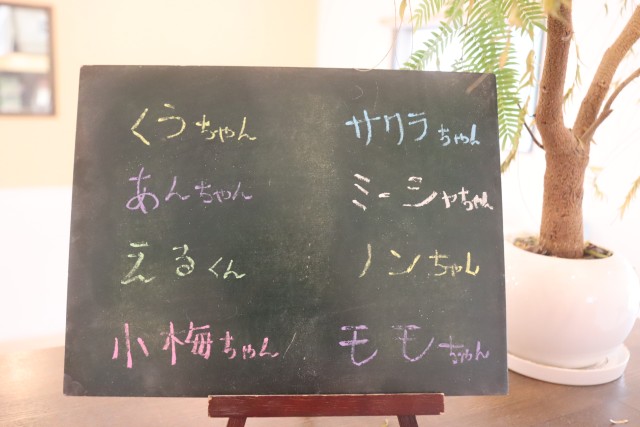 くうちゃん
あんちゃん
えるくん
小梅ちゃん
サクラちゃん
ミーシャちゃん
ノンちゃん
モモちゃん